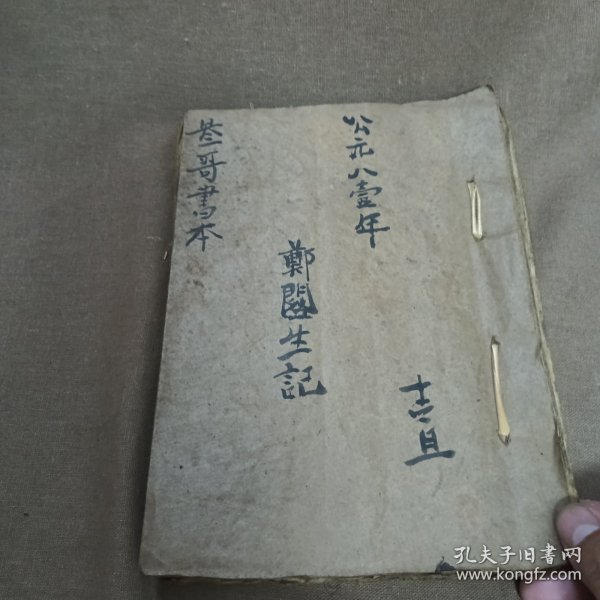 公元八壹年
吉旦
鄭開生記
叁哥書本
孔夫子旧书网
www.kongfz.com